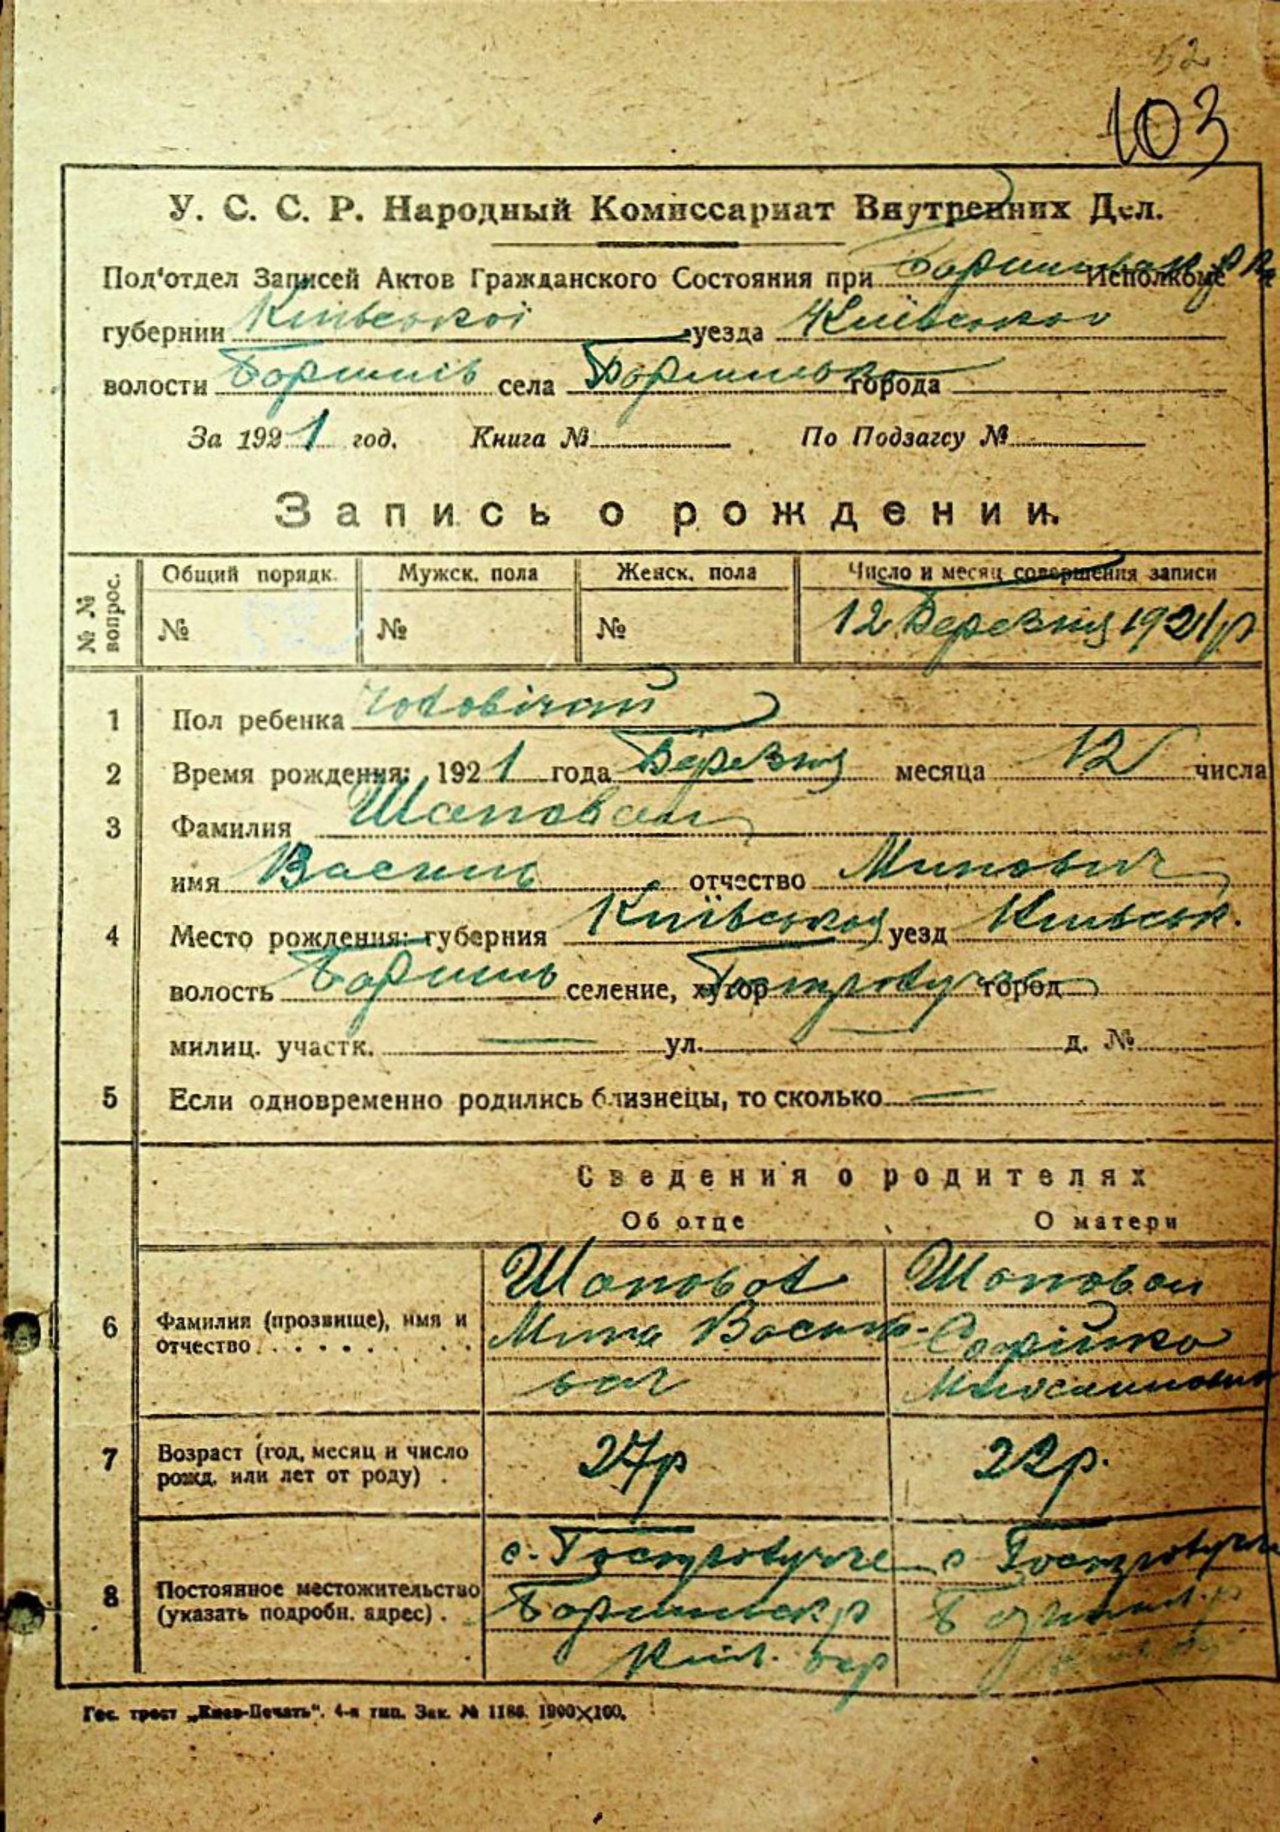 52
103
У. С. С. Р. Народный Комиссариат Внутренних Дел.
Под'отдел Записей Актов Гражданского Состояния при Исполкоме
губернии Київської уезда Київського
волости Боришпіль села города
За 1921 год. Книга № По Подзагсу №
Запись о рождении.
№ № вопрос. Общий порядк. Мужск. пола Женск. пола Число и месяц совершения записи
№ № № 12 Березня 1921 р
1 Пол ребенка Чоловічий
2 Время рождения: 1921 года Березня месяца 12 числа
3 Фамилия Шаповал
имя Василь отчество Минович
4 Место рождения: губерния Київська уезд Київськ.
волость селение, хутор город
милиц. участк. — ул. — д. №
5 Если одновременно родились близнецы, то сколько —
Сведения о родителях
Об отце О матери
6 Фамилия (прозвище), имя и отчество . . . . . . . .
Шаповал Шаповал
Мина Василь- Софійка
вич
7 Возраст (год, месяц и число рожд. или лет от роду) .
27р 22р.
8 Постоянное местожительство (указать подробн. адрес) .
Київ. окр
Гос. трест „Киев-Печать“. 4-я тип. Зак. № 1186. 1900×100.